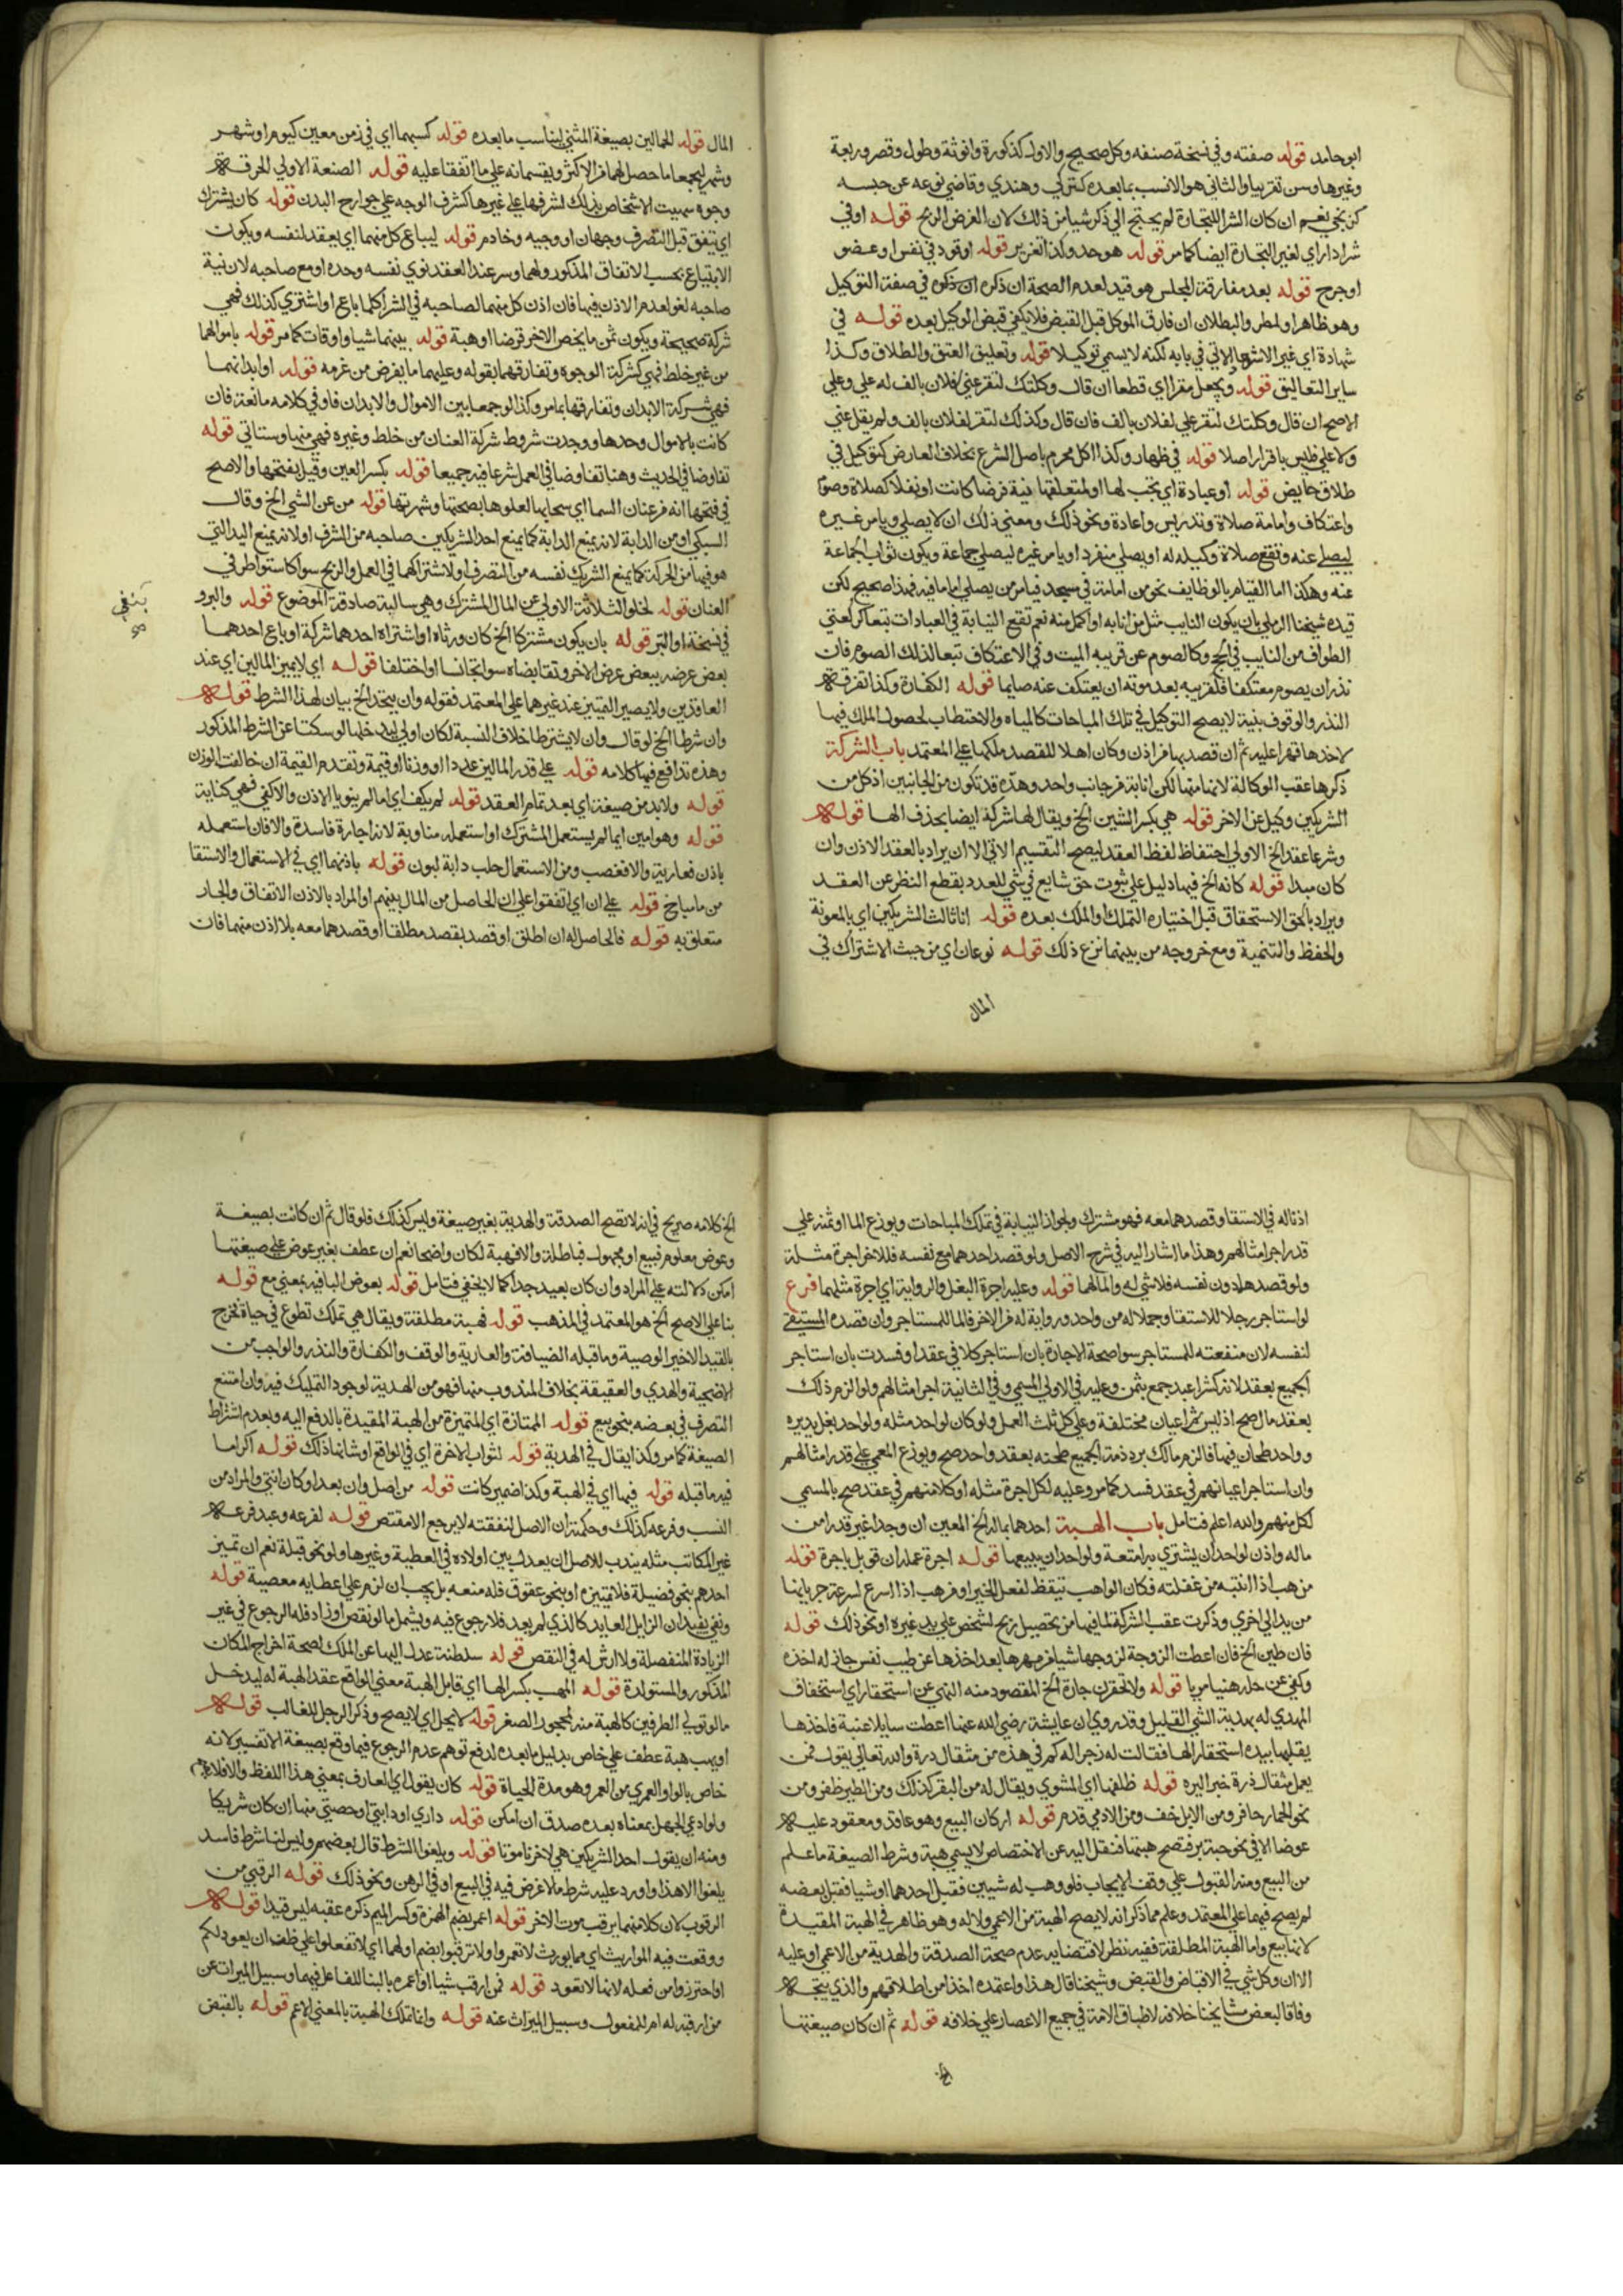 ابو حامد قوله صفته وفي نسخة صنفه وكل صحيح والاول كذكورة وانوثة وطول وقصر وربعة
وغيرها وسن تقريبا والثاني هو الانسب بما بعده كتركي وهندي وقاضي نوعه عن جنسه
كزنجي نعم ان كان الشرا للتجارة لم يحتج الي ذكر شيا من ذلك لان الغرض الربح قوله او في
شرا دار اي لغير التجارة ايضا كما مر قوله هو حد وكذا تعزير قوله او قود في نفس او عضو
او جرح قوله بعد مفارقة المجلس هو قيد لعدم الصحة ان ذكره ان ذكره في صفة التوكيل
وهو ظاهر او لمطر والبطلان ان فارق الموكل قبل القبض فلا يكفي قبض الوكيل بعده قوله في
شهادة اي غير الاشهاد الاتي في بابه لكنه لا يسمي توكيلا قوله وتعليق العتق والطلاق وكذا
ساير التعاليق قوله ويجعل مقرا اي قطعا ان قال وكلتك لتقر عني لفلان بالف له علي وعلي
الاصح ان قال وكلتك لتقر علي لفلان بالف فان قال وكذلك لتقر لفلان بالف ولم يقل عني
ولا علي فليس باقرار اصلا قوله في ظهار وكذا كل محرم باصل الشرع بخلاف العارض كتوكيل في
طلاق حايض قوله او عبادة اي يجب لها او لمتعلقها نية فرضا كانت او نفلا كصلاة وصوم
واعتكاف وامامة صلاة وتدريس واعادة ونحو ذلك ومعني ذلك ان لا يصلي ويامر غيره
ليصلي عنه وتقع صلاة وكيله له او يصلي منفردا ويامر غيره ليصلي جماعة ويكون ثواب الجماعة
عنه وهكذا اما القيام بالوظايف نحو من امامة في مسجد فيامر من يصلي اماما فيه فهذا صحيح لكن
قيده شيخنا الرملي بان يكون النايب مثل من انابه او اكمل منه نعم تقع النيابة في العبادات تبعا كركعتي
الطواف من النايب في الحج وكالصوم عن قريبه الميت وفي الاعتكاف تبعا لذلك الصوم فان
نذر ان يصوم معتكفا فلقريبه بعد موته ان يعتكف عنه صايما قوله الكفارة وكذا تفرقة
النذر والوقوف بنية لا يصح التوكيل في تلك المباحات كالمياه والاحتطاب لحصول الملك فيها
لاخذها قهرا عليه ثم ان قصد بها من اذن وكان اهلا للقصد ملكها علي المعتمد باب الشركة
ذكرها عقب الوكالة لانها منها لكن انابة من جانب واحد وهذه قد تكون من الجانبين اذ كل من
الشريكين وكيل عن الاخر قوله هي بكسر الشين الخ ويقال لها شركة ايضا بحذف الها قوله
وشرعا عقد الخ الاولي احتفاظ لفظ العقد ليصح التقسيم الاتي الا ان يراد بالعقد الاذن وان
كان مبدا قوله كانه الخ فيها دليل علي ثبوت حق شايع في شي للعدد بقطع النظر عن العقد
ويراد بالحق الاستحقاق قبل اختياره التملك والملك بعده قوله انا ثالث الشريكين اي بالمعونة
والحفظ والتنمية ومع خروجه من بينهما نزع ذلك قوله نوعان اي من حيث الاشتراك في
المال
المال قوله للمالين بصيغة المثني ليناسب ما بعده قوله كسبهما اي في زمن معين كيوم او شهر
وشهر ليجمعا ما حصل لهما من الاكثر ويقسمانه علي ما اتفقا عليه قوله الصنعة الاولي الحرفة
وجوه سميت الاشخاص بذلك لشرفها علي غيرها كشرف الوجه علي جوارح البدن قوله كان يشترك
اي يتفق قبل التصرف وجهان او وجيه وخادم قوله ليباع كل منهما اي يعقد لنفسه ويكون
الابتياع بحسب الاتفاق المذكور ولهما وسر عند العقد نوي نفسه وحده او مع صاحبه لان نية
صاحبه لغو لعدم الاذن فيها فان اذن كل منهما لصاحبه في الشرا كلما باع او اشتري كذلك فهي
شركة صحيحة ويكون ثمن ما يخص الاخر قرضا او هبة قوله بينهما شيا واوقات كما مر قوله باموالهما
من غير خلط فهي كشركة الوجوه وتفارقهما بقوله وعليهما ما يفرض من غرمه قوله او ابدانهما
فهي شركة الابدان وتفارقها بما مر وكذا لو جمعا بين الاموال والابدان فاو في كلامه مانعة فان
كانت بالاموال وحدها ووجدت شروط شركة العنان من خلط وغيره فهي منها وستاتي قوله
تفاوضا في الحديث وهنا تفاوضا في العمل شرعا فيه جميعا قوله بكسر العين وقيل بفتحها والاصح
في فتحها انه من عنان السما اي سحابها لعلوها بصحتها وشهرتها قوله من عن الشي الخ وقال
السبكي او من الدابة لانه يمنع الدابة كما يمنع احد الشريكين صاحبه من التصرف او لانه يمنع اليد التي
هو فيها من الحركة كما يمنع الشريك نفسه من التصرف او لاشتراكهما في العمل والربح سوا كاستوا طرفي
العنان قوله لخلو الثلاثة الاولي عن المال المشترك وهي سالبة صادقة الموضوع قوله والبر و
بنفي
في نسخة او التبر قوله بان يكون مشتركا الخ كان ورثاه او اشتراه احدهما شركة او باع احدهما
بعض عرضه ببعض عرض الاخر وتقابضاه سوا تجانسا او اختلفا قوله اي لا يميز المالين اي عند
العاقدين ولا يصير التمييز عند غيرهما علي المعتمد فقوله وان يتحد الخ بيان لهذا الشرط قوله
وان شرطا الخ لو قال وان لا يشترطا خلاف النسبة لكان اولي خلهما لو سكتا عن الشرط المذكور
وهذه تدافع فيها كلامه قوله علي قدر المالين عددا او وزنا او قيمة وتقدم القيمة ان خالفت الوزن
قوله ولا بد من صيغة اي بعد تمام العقد قوله لم يكف اي ما لم ينويا الاذن والا كفي فهي كناية
قوله وهو امين اي ما لم يستعمل المشترك او استعمله مناوبة لانه اجارة فاسدة والا فان استعمله
باذن فعارية والا فغصب ومن الاستعمال حلب دابة لبون قوله باذنهما اي في الاستعمال والاستقا
من ما مباح قوله علي ان اي اتفقوا علي ان الحاصل من المال بينهم او المراد بالاذن الاتفاق والجار
متعلق به قوله فالحاصل له ان اطلق او قصد بقصد مطلقا او قصدهما معه بلا اذن منهما فان
اذنا له في الاستقا وقصدهما معه فهو مشترك ولجواز النيابة في تملك المباحات ويوزع الما او ثمنه علي
قدر اجر امثالهم وهذا ما اشار اليه في شرح الاصل ولو قصد احدهما مع نفسه فللاخر اجرة مثله
ولو قصدهما دون نفسه فلا شي له والما لهما قوله وعليه اجرة البغل والرواية اي اجرة مثليهما فرع
لو استاجر رجلا للاستقا وجملا له من واحد وراوية له من الاخر فالما للمستاجر وان قصده المستقي
لنفسه لان منفعته للمستاجر سوا صحة الاجارة بان استاجر كلا في عقد او فسدت بان استاجر
الجميع بعقد لانه كشرا عبد جمع بثمن وعليه في الاولي المسمي وفي الثانية اجر امثالهم ولو الزم ذلك
بعقد مال صح اذ ليس ثم اعيان مختلفة وعلي كل ثلث العمل ولو كان لواحد مثله ولواحد بغل يديره
وواحد طحان فيها فالزم مالك بر ذمة الجميع طحنه بعقد واحد صح ويوزع المسمي علي قدر امثالهم
وان استاجر اعيانهم في عقد فسد كما مر وعليه لكل اجرة مثله او كلا منهم في عقد صح بالمسمي
لكل منهم والله اعلم فتامل باب الهبة احدهما بماله الخ المعين ان وجدا غير قدرا من
ماله واذن لواحد ان يشتري به امتعة ولواحد ان يبيعها قوله اجرة عمله ان قوبل باجرة قوله
من هب اذا انتبه من غفلته فكان الواهب تيقظ لفعل الخير او من هب اذا اسرع لسرعة جريانها
من يد الي اخري وذكرت عقب الشركة لما فيها من تحصيل ربح لشخص علي يد غيره او نحو ذلك قوله
فان طبن الخ فان اعطت الزوجة لزوجها شيا من مهرها بعد اخذها عن طيب نفس جاز له اخذه
وكفي عن حله هنيا مريا قوله ولا تحقرن جارة الخ المقصود منه النهي عن استحقار اي استخفاف
المهدي له بهدية الشي القليل وقد روي ان عايشة رضي الله عنها اعطت سايلا عنبة فاخذها
يقلبها بيده استحقارا لها فقالت له زجرا له كم في هذه من مثقال ذرة والله تعالي يقول فمن
يعمل مثقال ذرة خيرا يره قوله ظلفها اي المشوي ويقال له من البقر كذلك ومن الطير ظفر ومن
نحو الحمار حافر ومن الابل خف ومن الادمي قدم قوله اركان البيع وهو عاقد ومعقود عليه
عوضا الا في نحو حبة بر فتصح هبتها فنقل اليد عن الاختصاص لا يسمي هبة وشرط الصيغة ما علم
من البيع ومنه القبول علي وفق الايجاب فلو وهب له شيين فقبل احدهما او شيا فقبل بعضه
لم يصح فيهما علي المعتمد وعلم مما ذكر انه لا يصح الهبة من الاعمي ولا له وهو ظاهر في الهبة المقيدة
لانها بيع واما الهبة المطلقة ففيه نظر لاقتضايه عدم صحة الصدقة والهدية من الاعمي او عليه
الا ان وكل شي في الاقباض والقبض وشيخنا قال هذا واعتمده اخذا من اطلاقهم والذي يتجه
وفاقا لبعض مشايخنا خلافه لاطباق الامة في جميع الاعصار علي خلافه قوله ثم ان كان صيغتها
الخ
الخ كلامه صريح في انه لا تصح الصدقة والهدية بغير صيغة وليس كذلك فلو قال ثم ان كانت بصيغة
وعوض معلوم فبيع او مجهول فباطلة والا فهبة لكان واضحا نعم ان عطف بغير عوض علي صيغتها
امكن دلالته علي المراد وان كان بعيد جدا كما لا يخفي فتامل قوله بعوض البا فيه بمعني مع قوله
بنا علي الاصح الخ هو المعتمد في المذهب قوله فهبة مطلقة ويقال هي تملك تطوع في حياة فخرج
بالقيد الاخير الوصية وما قبله الضيافة والعارية والوقف والكفارة والنذر والواجب من
الاضحية والهدي والعقيقة بخلاف المندوب منها فهو من الهدية لوجود التمليك فيه وان امتنع
التصرف في بعضه بنحو بيع قوله الممتازة اي المتميزة من الهبة المقيدة بالدفع اليه وبعدم اشتراط
الصيغة كما مر وكذا يقال في الهدية قوله لثواب الاخرة اي في الواقع او شانها ذلك قوله اكراما
فيه ما قبله قوله فيها اي في الهبة وكذا ضمير كانت قوله من اصل وان بعد او كان انثي والمراد من
النسب وفرعه كذلك وحكمته ان الاصل لنفقته لا يرجع الا مقتص قوله لفرعه وعبد فرعه
غير المكاتب مثله يندب للاصل ان يعدل بين اولاده في العطية وغيرها ولو نحو قبلة نعم ان تميز
احدهم بنحو فضيلة فلا يتميزه او بنحو عقوق فله منعه بل يجب ان لزم علي اعطايه معصية قوله
ونفي بقيد ان الزايل العايد كالذي لم يعد فلا رجوع فيه ويشمل ما لو نقص او زاد فله الرجوع في غير
الزيادة المنفصلة ولا ارش له في النقص قوله سلطنة عدل اليها عن الملك لصحة اخراج المكان
المذكور والمستولدة قوله المهب بكسر الها اي قابل الهبة معني الواقع عقد الهبة له ليدخل
ما لو تولي الطرفين كالهبة منه لمحجوره الصغير قوله لا يحل اي لا يصح وذكر الرجل للغالب قوله
او يهب هبة عطف علي خاص بدليل ما بعده لدفع توهم عدم الرجوع فيما وقع بصيغة الا تفسير لانه
خاص بالواو العمري من العمر وهو مدة الحياة قوله كان يقول اي العارف بمعني هذا اللفظ والا فلا
ولو ادعي الجهل بمعناه بعده صدق ان امكن قوله داري او دابتي او حصتي منها ان كان شريكا
ومنه ان يقول احد الشريكين هي لاخرنا موتا قوله ويلغو الشرط قال بعضهم وليس لنا شرط فاسد
يلغو الا هذا واورد عليه شرط ما لا غرض فيه في البيع او في الرهن ونحو ذلك قوله الرقبي من
الرقوب لان كلا منهما يرقب موت الاخر قوله اعمر بضم الهمزة وكسر الميم ذكره عقبه ليس قيدا قوله
ووقعت فيه المواريث اي مما يورث لا تعمروا ولا ترقبوا بضم اولهما اي لا تفعلوا علي ظن ان يعود لكم
او احترزوا من فعله لانها لا تعود قوله فمن ارقب شيا او اعمره بالبنا للفاعل فيهما وسبيل الميراث عن
من ارقبه له ام للمفعول وسبيل الميراث عنه قوله وانما تملك الهبة بالمعني الاعم قوله بالقبض